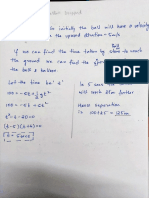 initially the ball will have a velocity
the upward direction = 5 m/s
If we can find the time taken by Ball to reach
the ground we can find the
the ball & balloon
Let the time be 't'
100 = -5t + 1/2 gt²
100 = -5t + 5t²
t² - t - 20 = 0
(t-5)(t+4) = 0
t = 5 sec
In 5 sec
will reach 25m further
Hence separation
is 100+25 = 125m